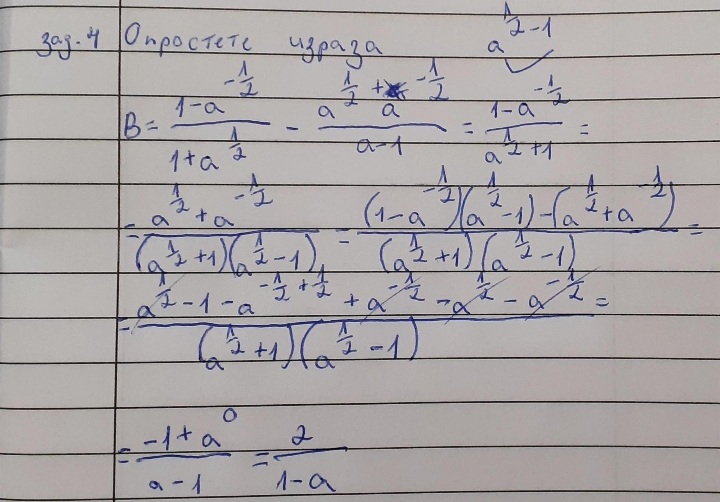 зад. 4 Опростете израза a^{\frac{1}{2}-1}
B = \frac{1-a^{-\frac{1}{2}}}{1+a^{\frac{1}{2}}} - \frac{a^{\frac{1}{2}}+a^{-\frac{1}{2}}}{a-1} = \frac{1-a^{-\frac{1}{2}}}{a^{\frac{1}{2}}+1} =
= \frac{a^{\frac{1}{2}}+a^{-\frac{1}{2}}}{(a^{\frac{1}{2}}+1)(a^{\frac{1}{2}}-1)} = \frac{(1-a^{-\frac{1}{2}})(a^{\frac{1}{2}}-1)-(a^{\frac{1}{2}}+a^{-\frac{1}{2}})}{(a^{\frac{1}{2}}+1)(a^{\frac{1}{2}}-1)} =
= \frac{a^{\frac{1}{2}}-1-a^{-\frac{1}{2}+\frac{1}{2}}+a^{-\frac{1}{2}}-a^{\frac{1}{2}}-a^{-\frac{1}{2}}}{(a^{\frac{1}{2}}+1)(a^{\frac{1}{2}}-1)} =
= \frac{-1+a^{0}}{a-1} = \frac{2}{1-a}